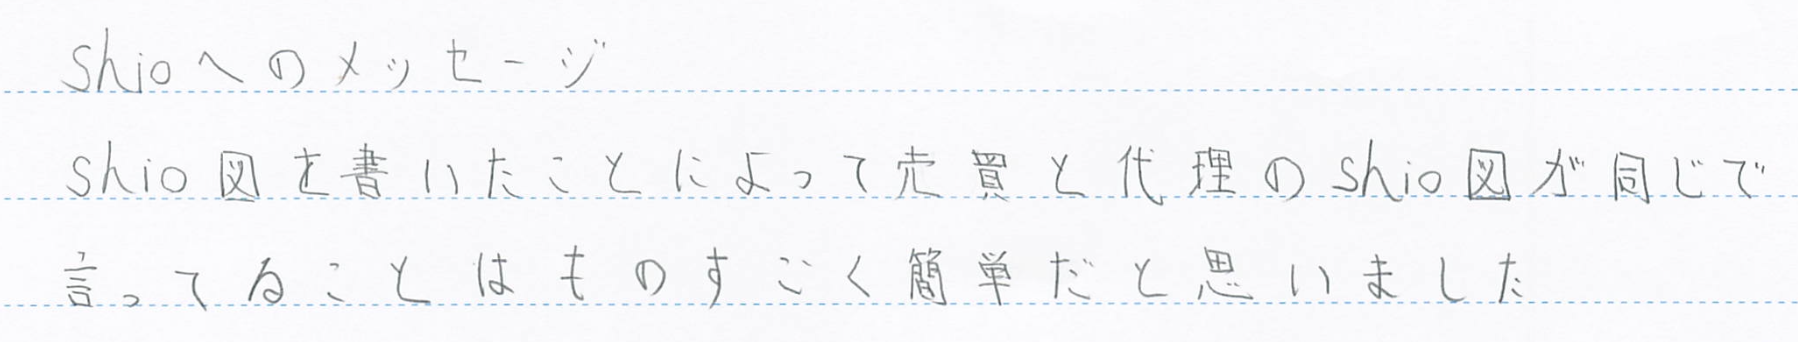 shioへのメッセージ
shio図を書いたことによって売買と代理のshio図が同じで
言ってることはものすごく簡単だと思いました